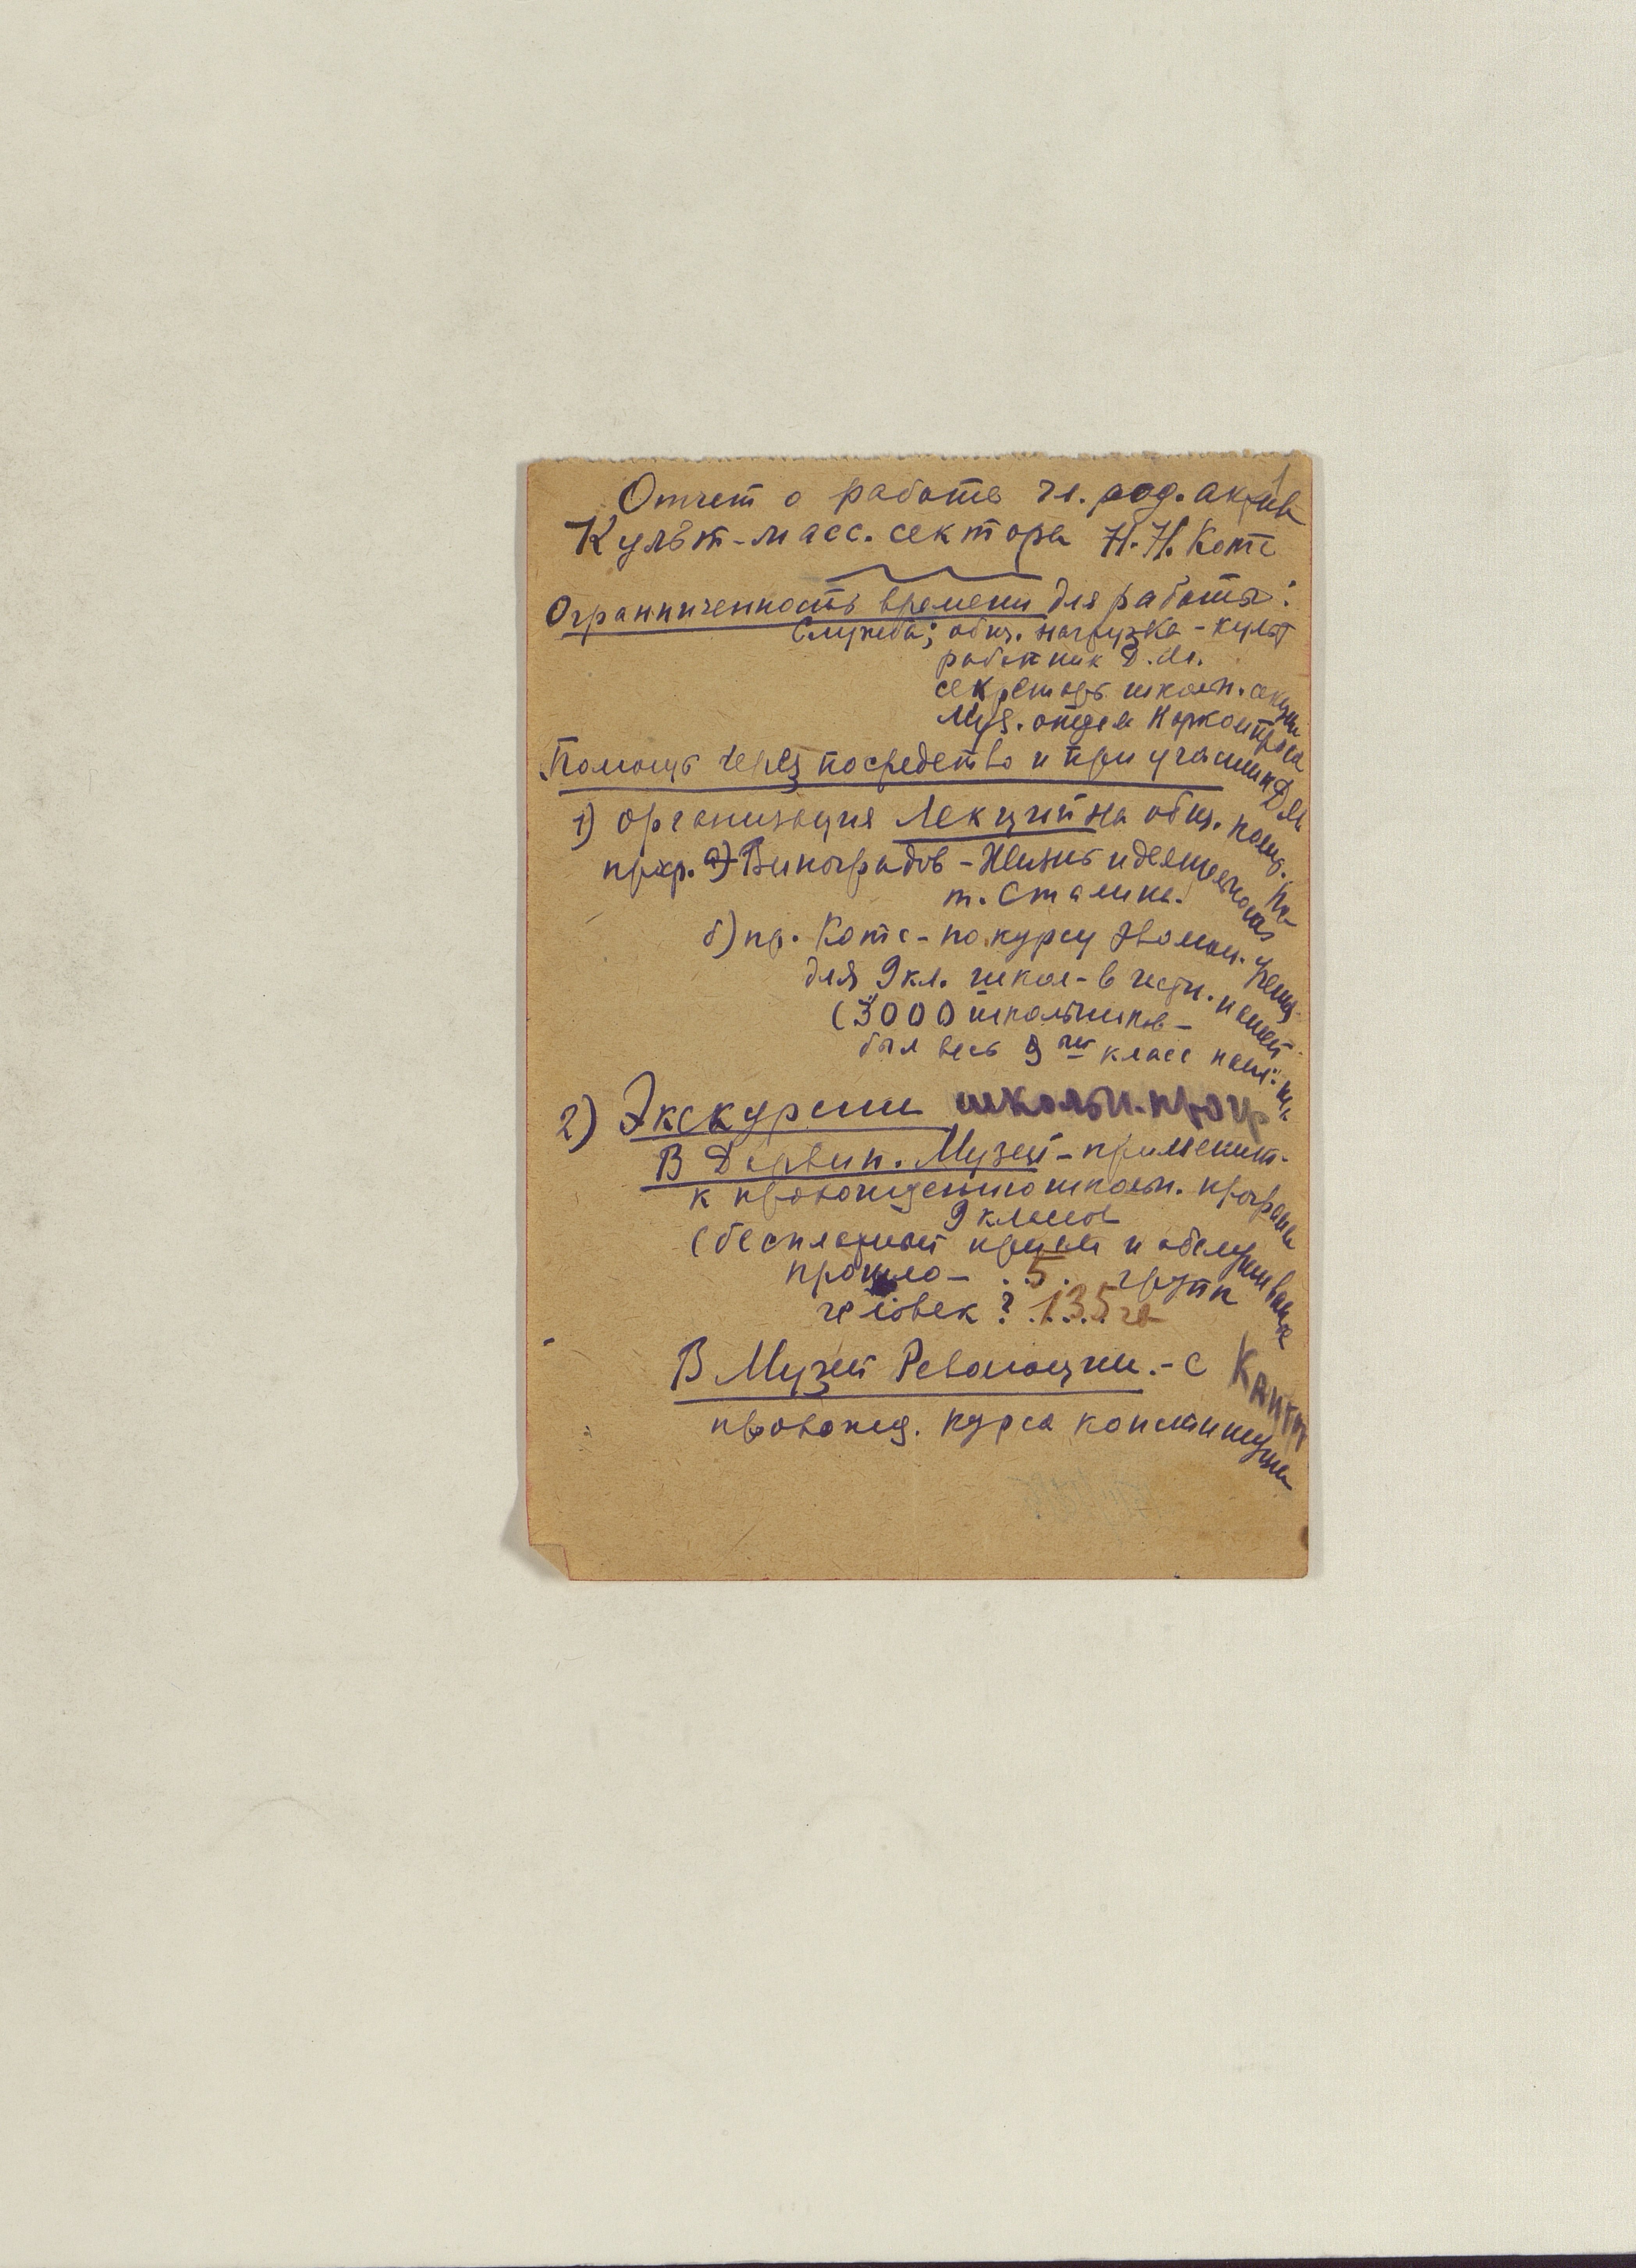 Отчет о работе чл. род. актив
Культ-масс. сектора Н.Н. Котс
Ограниченность времени для работы:
Служба; общ. нагрузка - культ
работник Д.М.
секретарь школьн. секции
Муз. отдела Наркомпроса
Помощь через посредство и при участии Д М
1) Организация Лекций на общ. полит.
прогр. а) Виноградов - Жизнь и деятельность
т. Сталина.
б) пр. Котс - по курсу Эволюц. учения
для 9 кл. школ - в честь. нашей
(3000 школьников -
был весь 9ый класс наш. шк
2) Экскурсии школьн. прогр
В Дарвин. Музей - применит.
к прохождению школьн. програм
9 классов
(бесплатный прием и обслуживание
прошло - . 5 . групп
человек ? .135 че
В Музей Революции. - с
прохожд. курса конституции